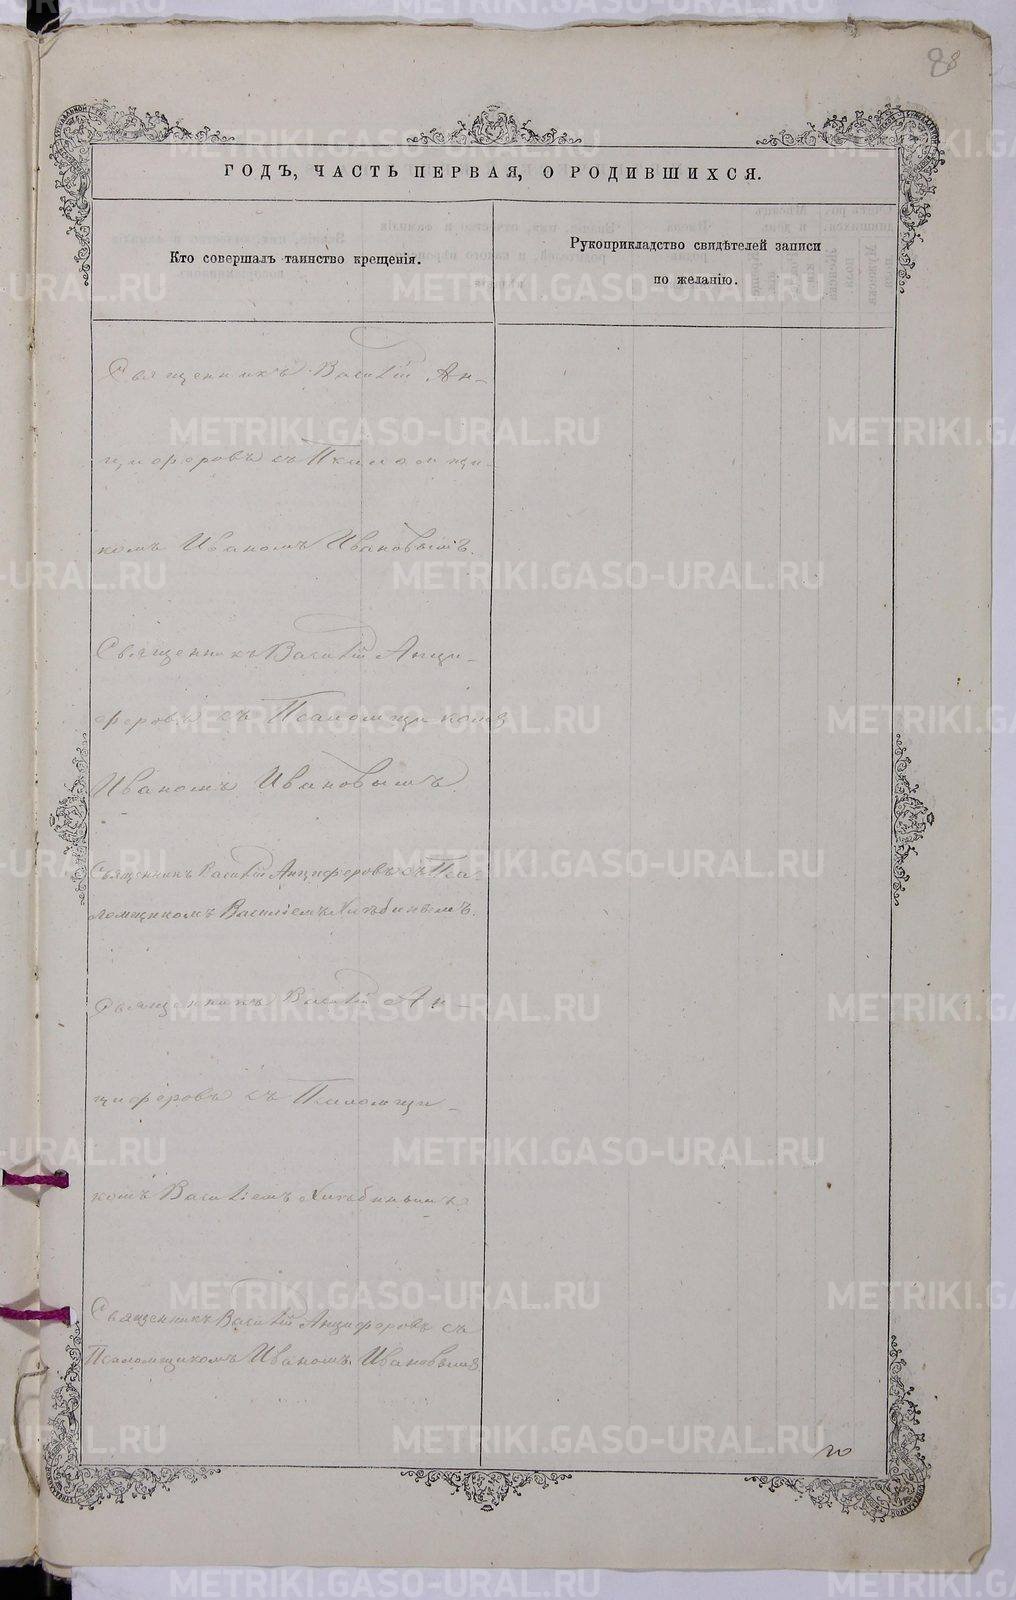 88
ГОДЪ, ЧАСТЬ ПЕРВАЯ, О РОДИВШИХСЯ.
Кто совершалъ таинство крещенія.
Рукоприкладство свидѣтелей записи
по желанію.
Священникъ Василій Ан-
циферовъ съ Псаломщи-
комъ Иваномъ Ивановымъ.
Священникъ Василій Анци-
феровъ съ Псаломщикомъ
Иваномъ Ивановымъ.
Священникъ Василій Анциферовъ съ Пса-
ломщикомъ Василіемъ
Священникъ Василій Ан-
циферовъ съ Псаломщи-
комъ Василіемъ
Священникъ Василій Анциферовъ съ
Псаломщикомъ Иваномъ Ивановымъ
METRIKI.GASO-URAL.RU